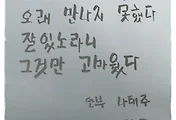 오래 만나지 못했다
잘 있노라니
그것만 고마웠다
안부 나태주